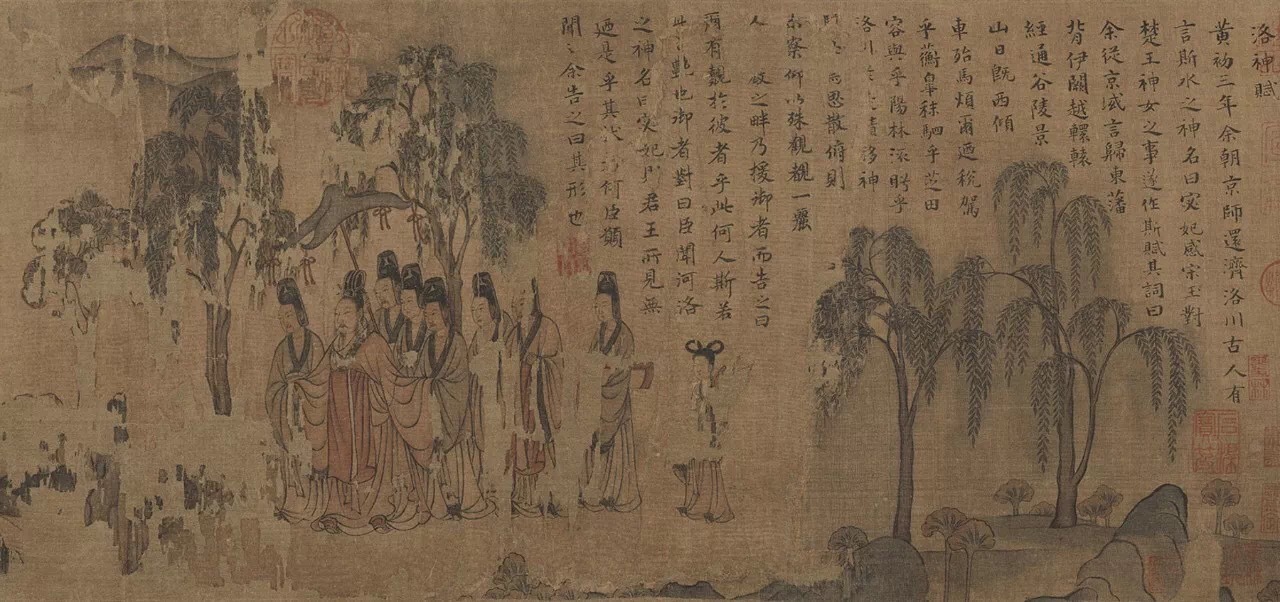 洛神賦
黃初三年余朝京師還濟洛川古人有
言斯水之神名曰宓妃感宋玉對
楚王神女之事遂作斯賦其詞曰
余從京域言歸東藩
背伊闕越轘轅
經通谷陵景
山日既西傾
車殆馬煩爾迺稅駕
乎蘅皐秣駟乎芝田
容與乎陽林流眄乎
洛川於是精移神
思散俯則
未察仰以殊觀覩一麗
人之畔乃援御者而告之曰
爾有覿於彼者乎此何人斯若
此之艷也御者對曰臣聞河洛
之神名曰宓妃則君王所見無
迺是乎其狀若何臣願
聞之余告之曰其形也